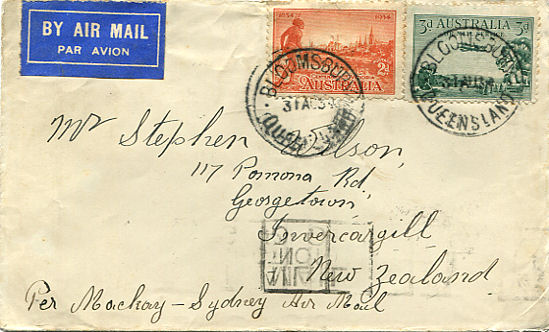 BY AIR MAIL
PAR AVION
1834 1934
2d
AUSTRALIA
3d AUSTRALIA 3d
BLOOMSBURY
31 AU 34
QUEENSLAND
BLOOMSBURY
31 AU 34
QUEENSLAND
Mr Stephen
117 Pomona Rd
Georgetown
Invercargill
New Zealand
Per Mackay - Sydney Air Mail